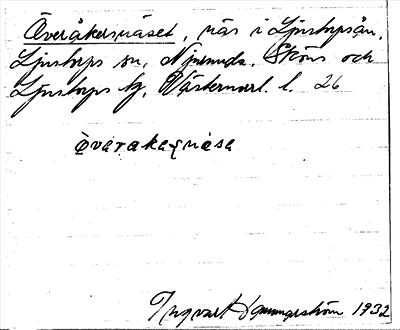 Överåkersnäset, näs i Ljustorpsån,
Ljustorps sn, Njurunda, Sköns och
Ljustorps tg, Västernorrl. l. 26
överakeṣnẹse
Ingvar Hammarström 1932